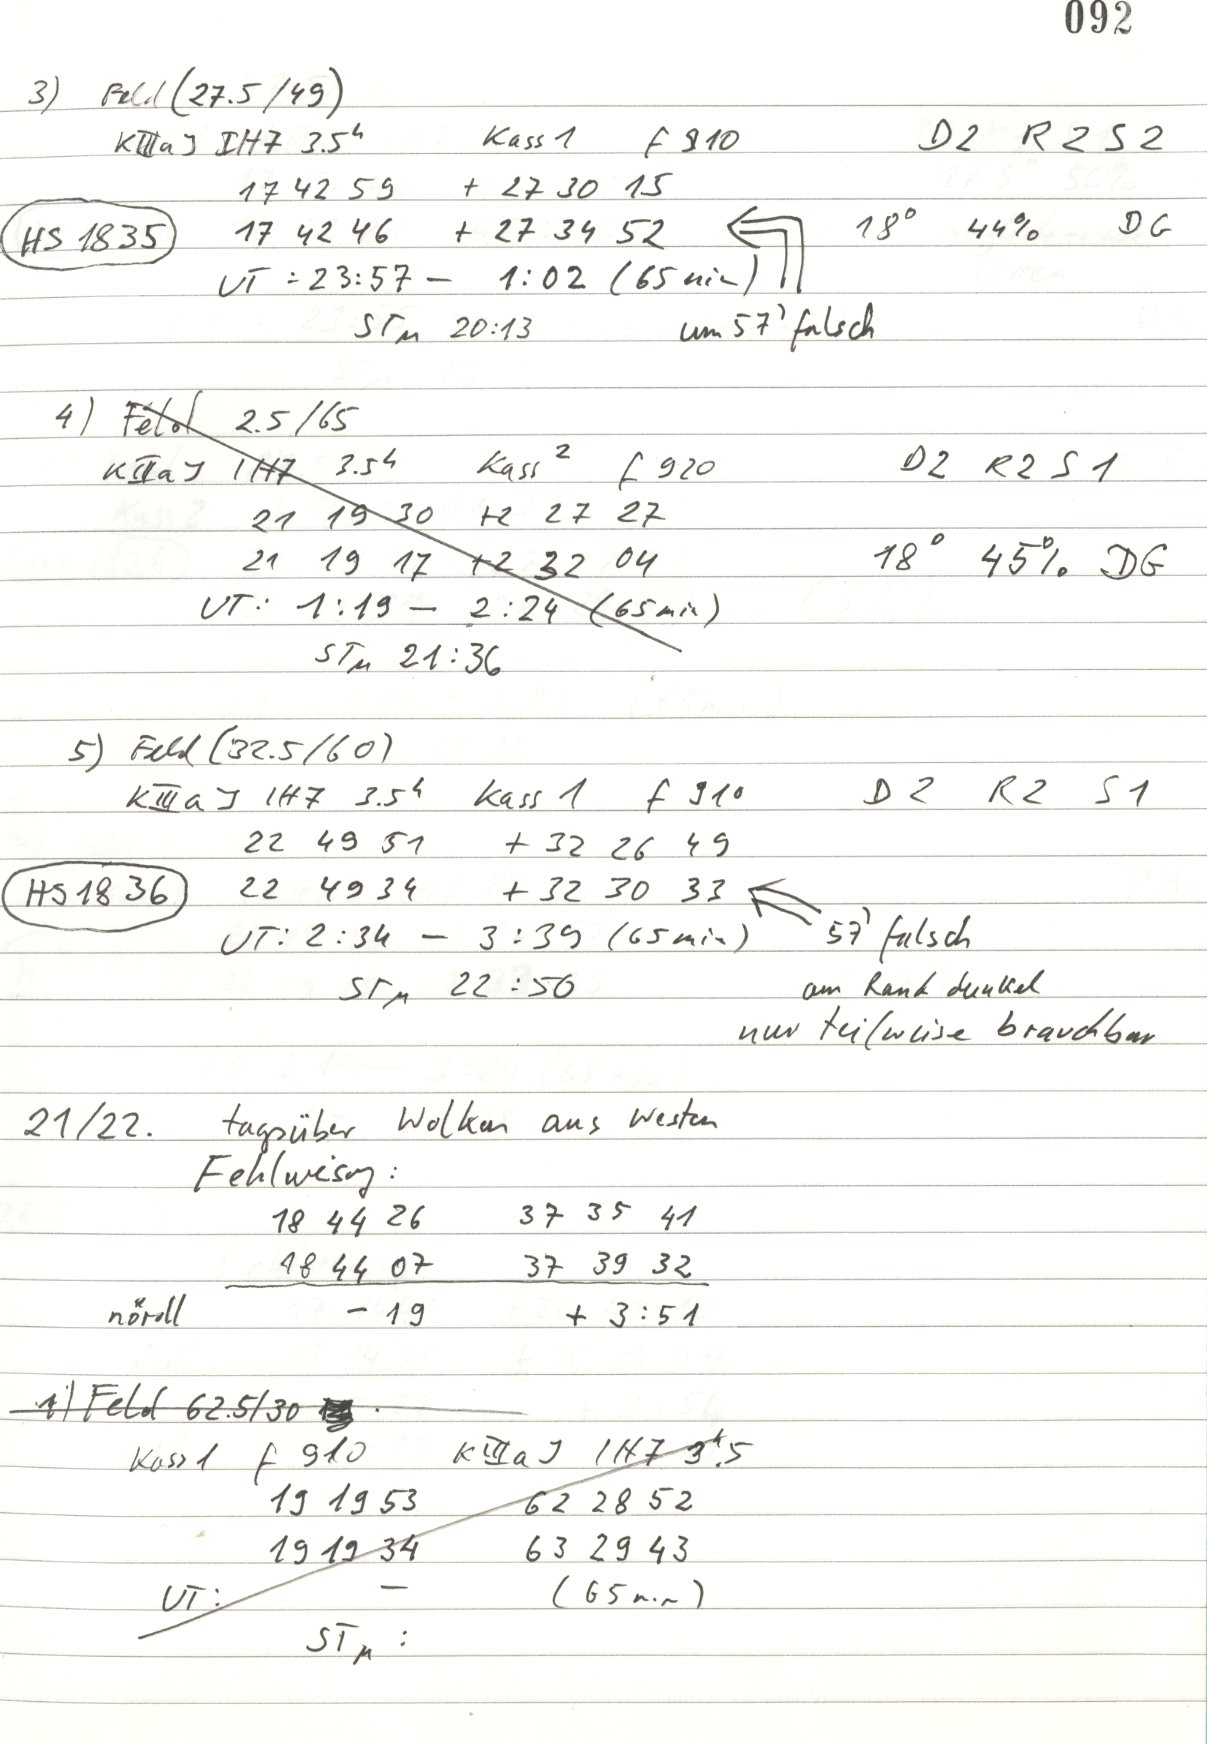 092
3) Feld (27.5/49)
KIIIaJ IH7 3.5h Kass 1 f 910 D2 R2 S2
17 42 59 + 27 30 15
HS 1835 17 42 46 + 27 34 52 18° 44% DG
UT: 23:57 – 1:02 (65 min)
STM 20:13 um 57' falsch
4) Feld 2.5/65
KIIIaJ IH7 3.5h Kass 2 f 920 D2 R2 S1
21 19 30 +2 27 27
21 19 17 +2 32 04 18° 45% DG
UT: 1:19 – 2:24 (65 min)
STM 21:36
5) Feld (32.5/60)
KIIIaJ IH7 3.5h Kass 1 f 910 D2 R2 S1
22 49 51 + 32 26 49
HS 1836 22 49 34 + 32 30 33
UT: 2:34 – 3:39 (65 min) 57' falsch
STM 22:50 am Rand dunkel
nur teilweise brauchbar
21/22. tagsüber Wolken aus Westen
Fehlweisg:
18 44 26 37 35 41
18 44 07 37 39 32
nördl – 19 + 3:51
1) Feld 62.5/30
Kass 1 f 910 KIIIaJ IH7 3h.5
19 19 53 62 28 52
19 19 34 63 29 43
UT: – (65 min)
STM :